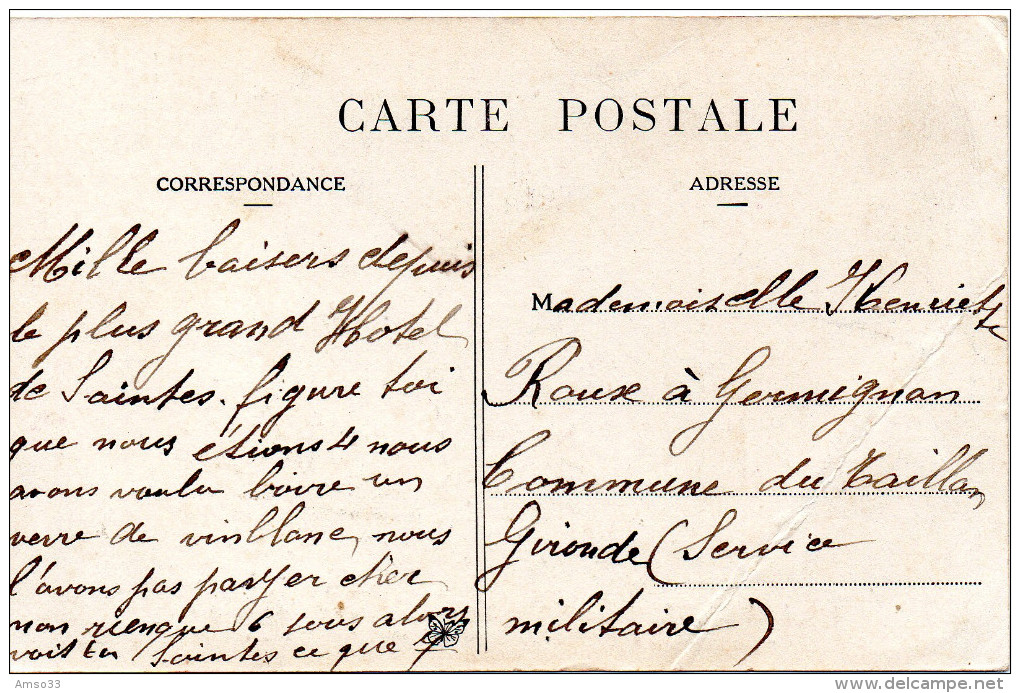 CARTE POSTALE
CORRESPONDANCE
Mille baisers depuis
le plus grand Hotel
de Saintes. figure toi
que nous étions 4 nous
avons voulu boire un
verre de vin blanc, nous
l'avons pas payer cher
non rien que 6 sous alors
vois tu Saintes ce que
ADRESSE
Mademoiselle Henriette
Roux à Germignan
Commune du Taillan
Gironde (Service
militaire)
Amso33
delcampe.net